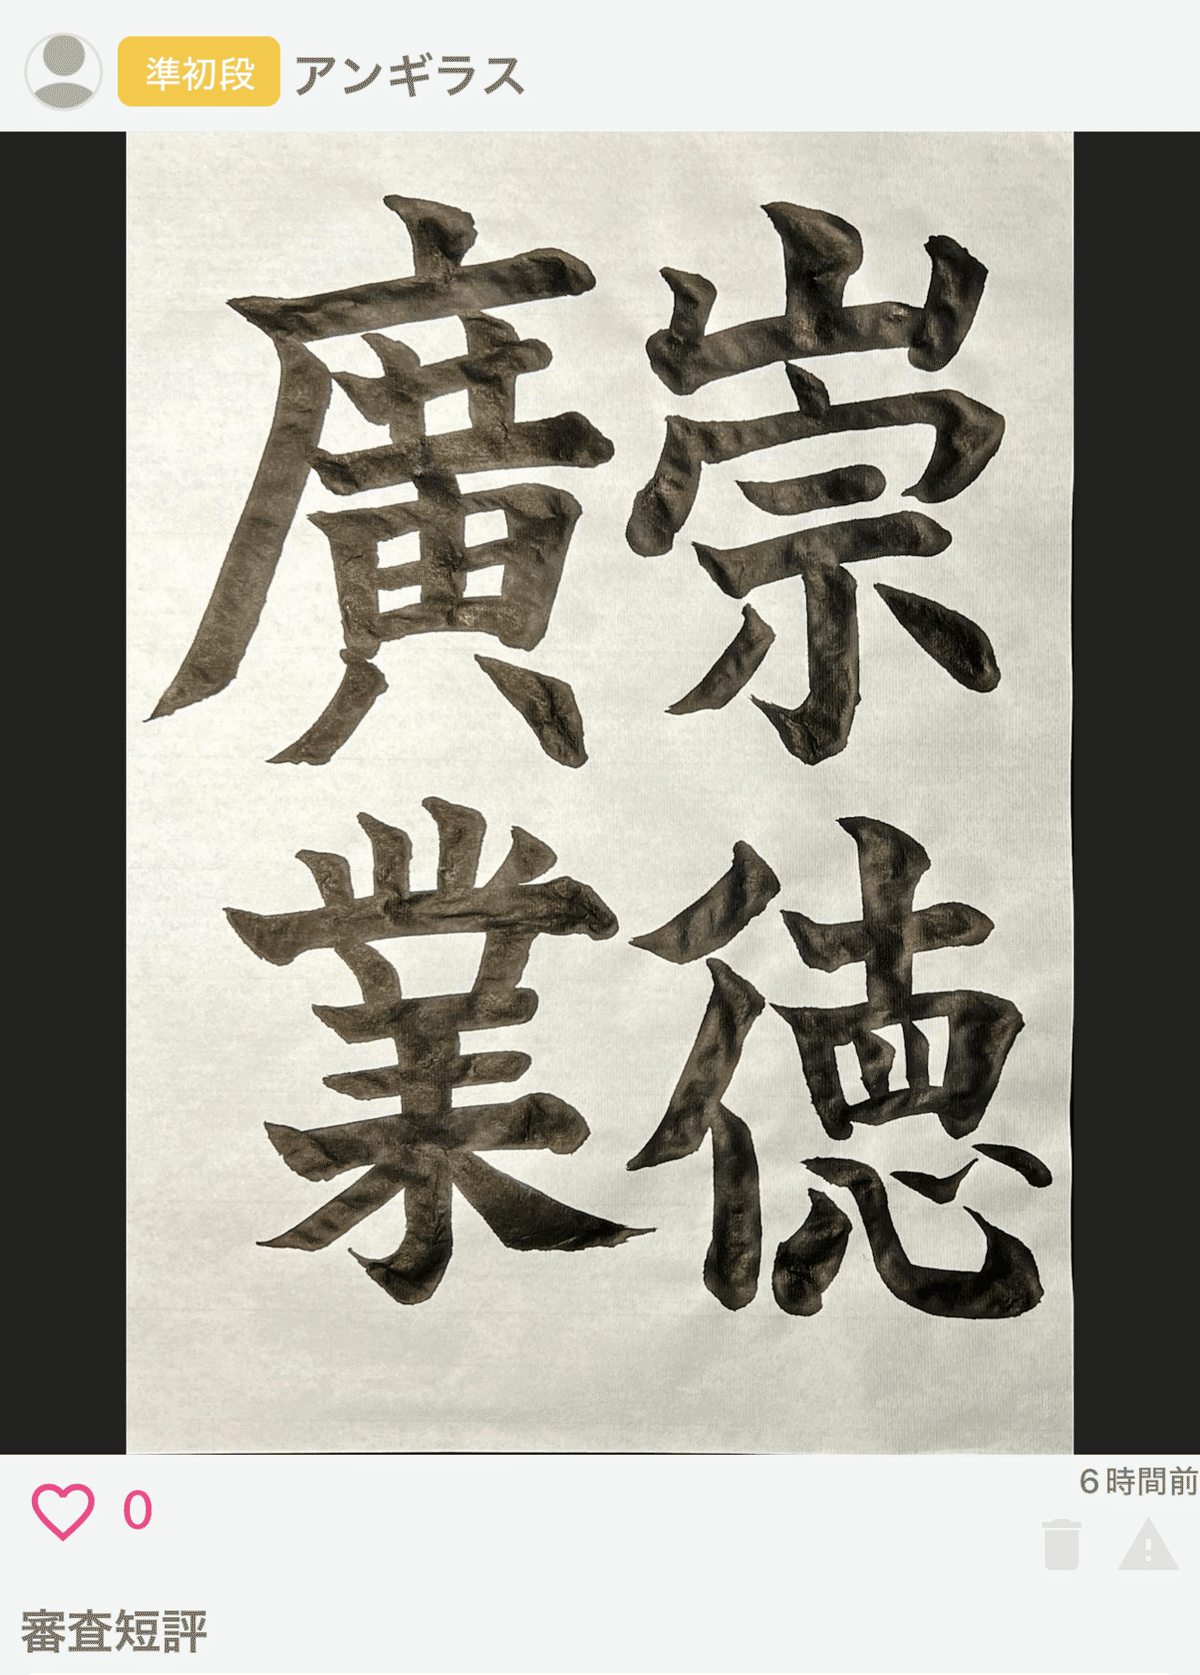 準初段 アンギラス
崇徳
廣業
0
6時間前
審査短評